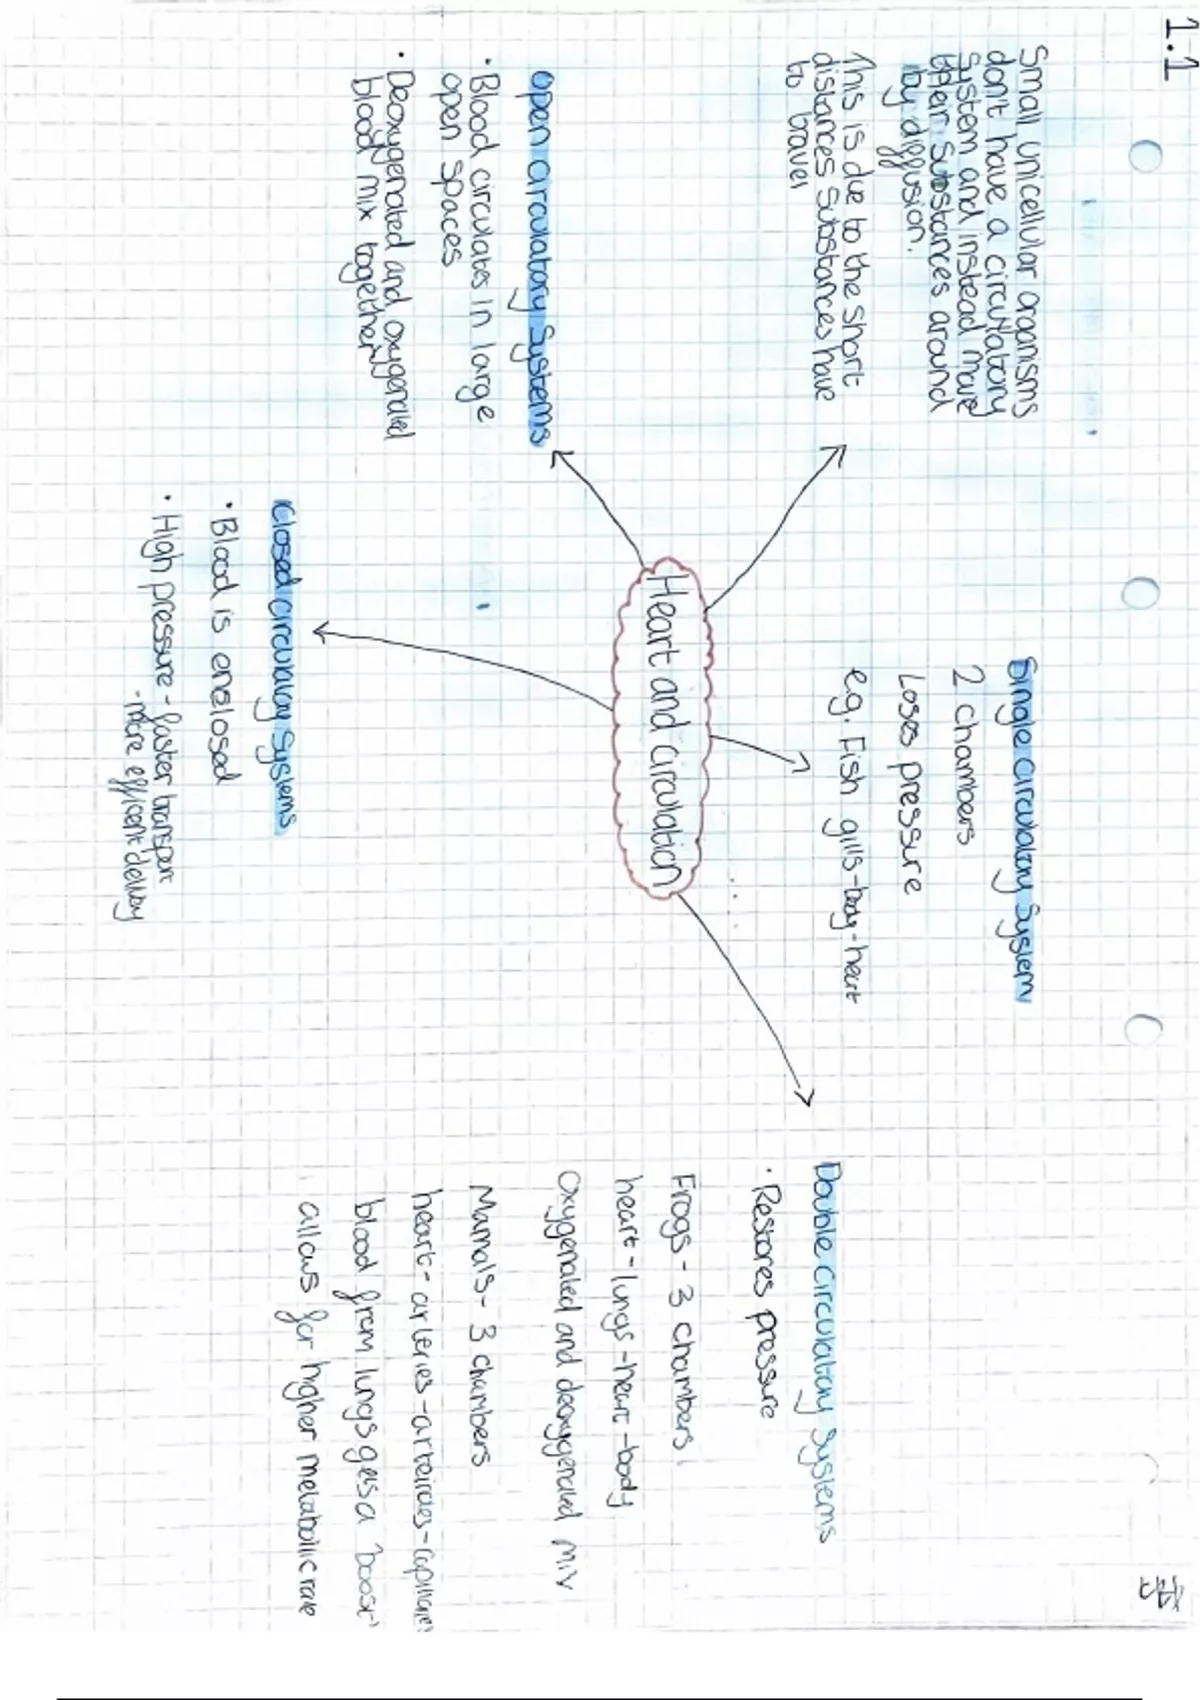 1.1
Small unicellular organisms
don't have a circulatory
System and instead move
their substances around
by diffusion.
This is due to the short
distances substances have
to travel
Single circulatory System
2 chambers
Loses pressure
e.g. Fish gills-body-heart
Heart and circulation
Open circulatory Systems
· Blood circulates in large
open spaces
· Deoxygenated and oxygenated
blood mix together
Closed circulatory Systems
· Blood is enclosed
· High pressure - faster transport
- more efficient delivery
Double circulatory Systems
· Restores pressure
Frogs - 3 chambers
heart - lungs - heart - body
Oxygenated and deoxygenated mix
Mamals - 3 chambers
heart - arteries - arterioles - capillaries
blood from lungs gets a 'boost'
allows for higher metabolic rate